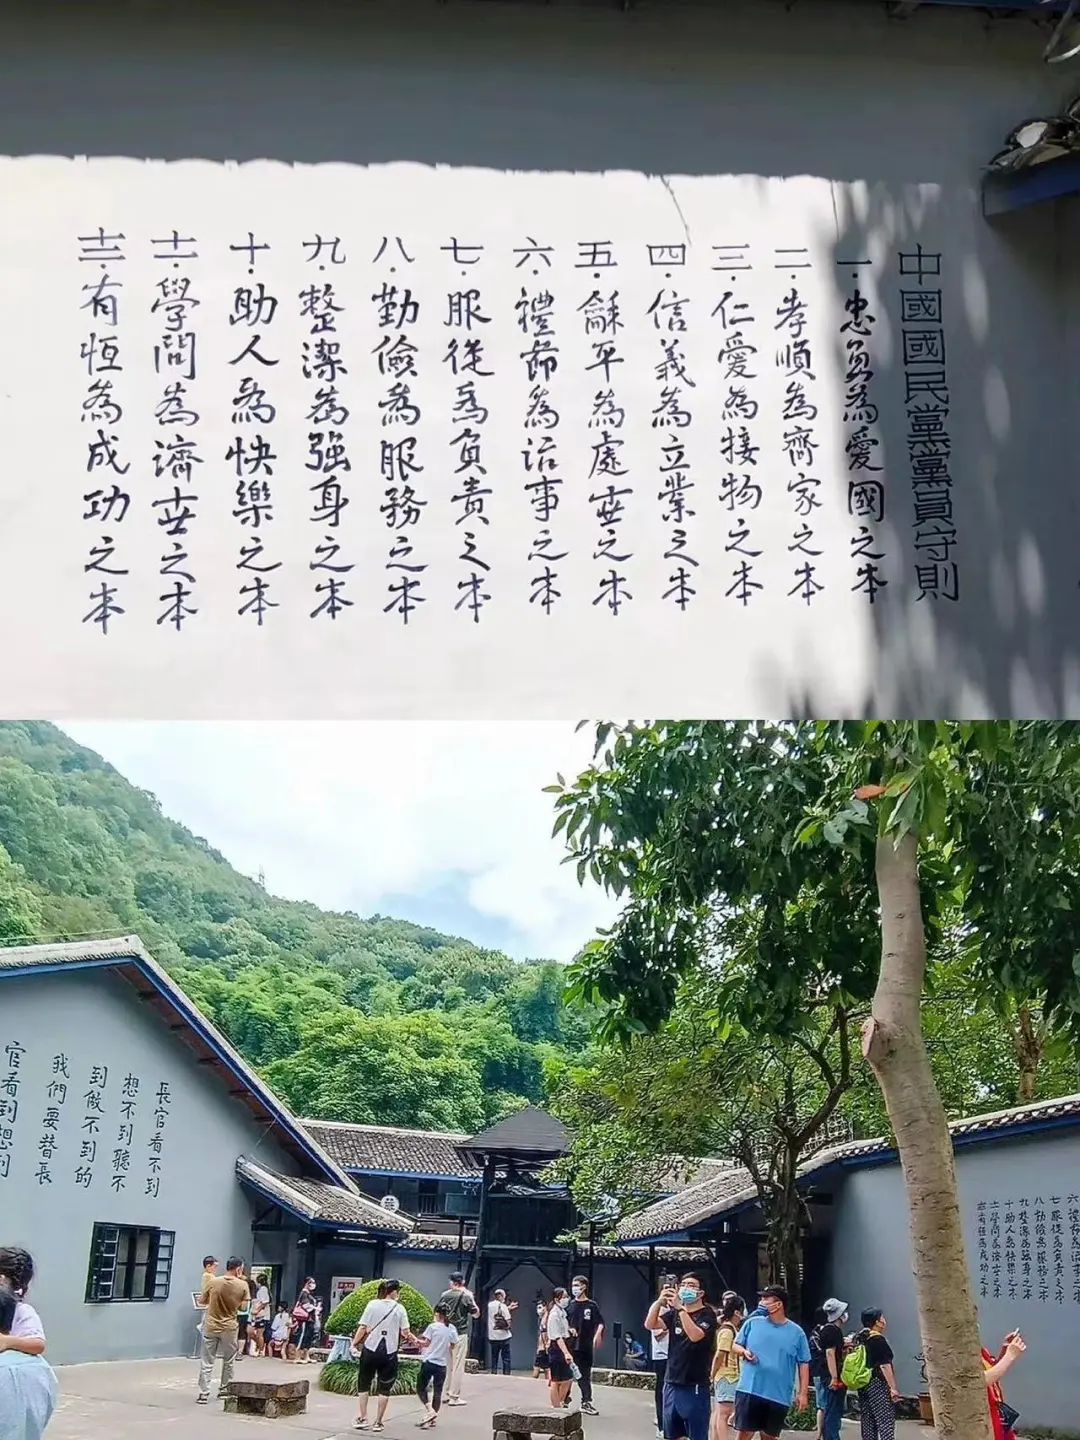 中國國民黨黨員守則
一·忠勇為愛國之本
二·孝順為齊家之本
三·仁愛為接物之本
四·信義為立業之本
五·龢平為處世之本
六·禮節為治事之本
七·服從為負責之本
八·勤儉為服務之本
九·整潔為強身之本
十·助人為快樂之本
十一·學問為濟世之本
十二·有恆為成功之本
長官看不到
想不到聽不
到做不到的
我們要替長
官看到想到
六禮節為治事之本
七服從為負責之本
八勤儉為服務之本
九整潔為強身之本
十助人為快樂之本
十一學問為濟世之本
十二有恆為成功之本